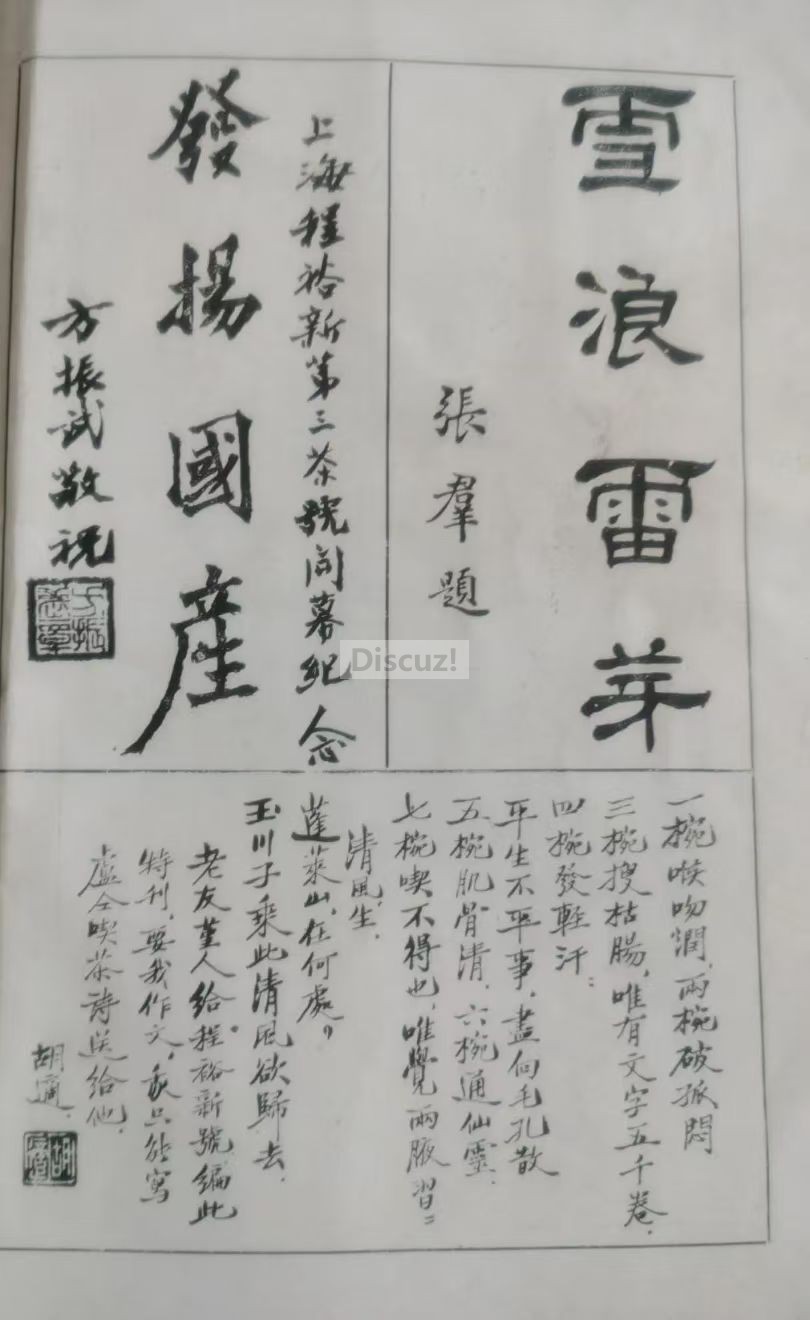 雪浪雷芽
張羣題
上海程裕新第三茶號開幕紀念
發揚國產
方振武敬祝
一椀喉吻潤，兩椀破孤悶
三椀搜枯腸，唯有文字五千卷，
四椀發輕汗：
平生不平事，盡向毛孔散
五椀肌骨清，六椀通仙靈，
七椀喫不得也，唯覺兩腋習〻
清風生，
蓬萊山，在何處，
玉川子乘此清風欲歸去，
老友堇人給程裕新號編此
特刊，要我作文，我只能寫
盧仝喫茶詩送給他，
胡適，
Discuz!